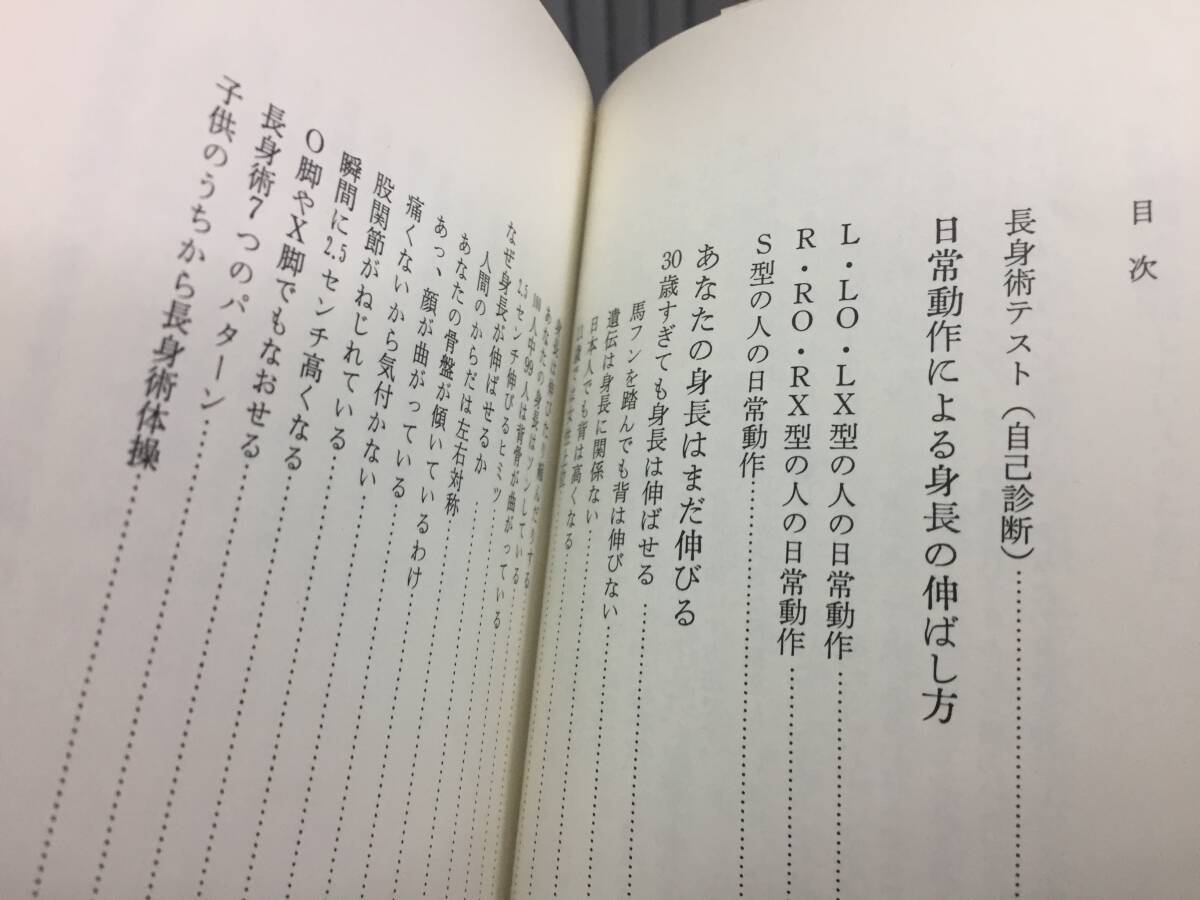 目次
長身術テスト（自己診断）
日常動作による身長の伸ばし方
L・LO・LX型の人の日常動作
R・RO・RX型の人の日常動作
S型の人の日常動作
あなたの身長はまだ伸びる
30歳すぎても身長は伸ばせる
馬フンを踏んでも背は伸びない
遺伝は身長に関係ない
日本人でも背は高くなる
身長は伸びたり縮んだりする
あなたの身長はソンしている
100人中99人は背骨が曲がっている
2.5センチ伸びるヒミツ
なぜ身長が伸ばせるか
人間のからだは左右対称
あなたの骨盤が傾いているわけ
あっ、顔が曲がっている
痛くないから気付かない
股関節がねじれている
瞬間に2.5センチ高くなる
O脚やX脚でもなおせる
長身術7つのパターン
子供のうちから長身術体操